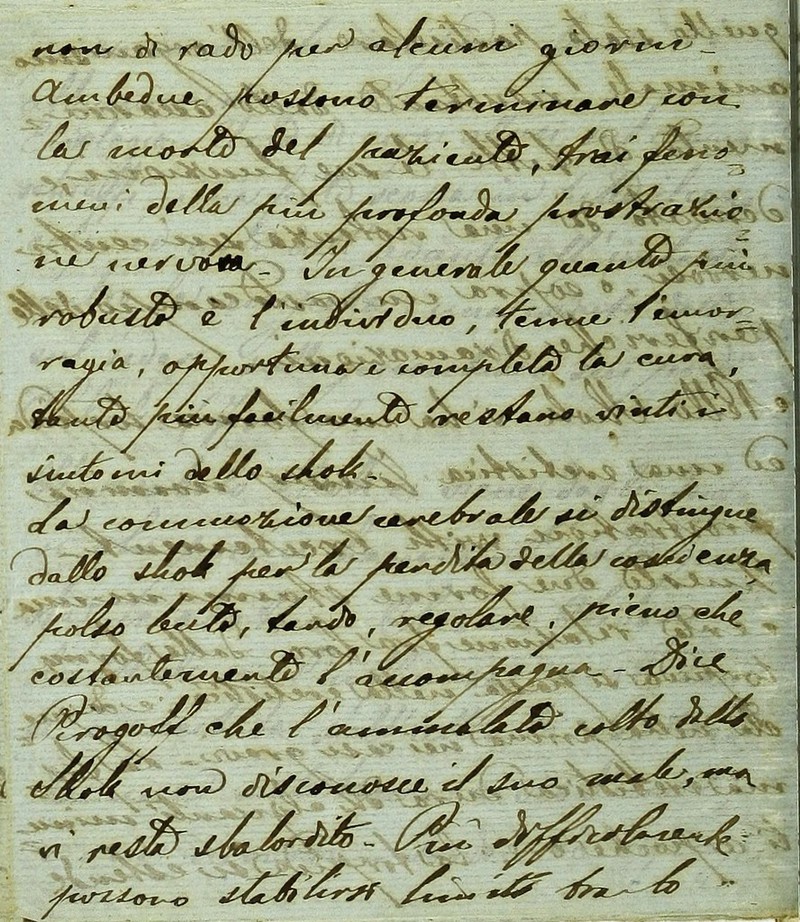 non di rado per alcuni giorni -
Ambedue possono terminare con
la morte del paziente, trai feno=
meni della più profonda prostrazio=
ne nervosa - In generale quanto più
robusto è l'individuo, tenue l'emor=
ragia, opportuna e completa la cura,
tanto più facilmente restano vinti i
sintomi dello shok -
La commozione cerebrale si distingue
dallo shok per la perdita della coscienza,
polso lento, tardo, regolare, pieno che
costantemente l'accompagna - Dice
Pirogoff che l'ammalato colto dallo
Shok non disconosce il suo male, ma
vi resta sbalordito - Più difficilmente
possono stabilirsi limiti tra lo